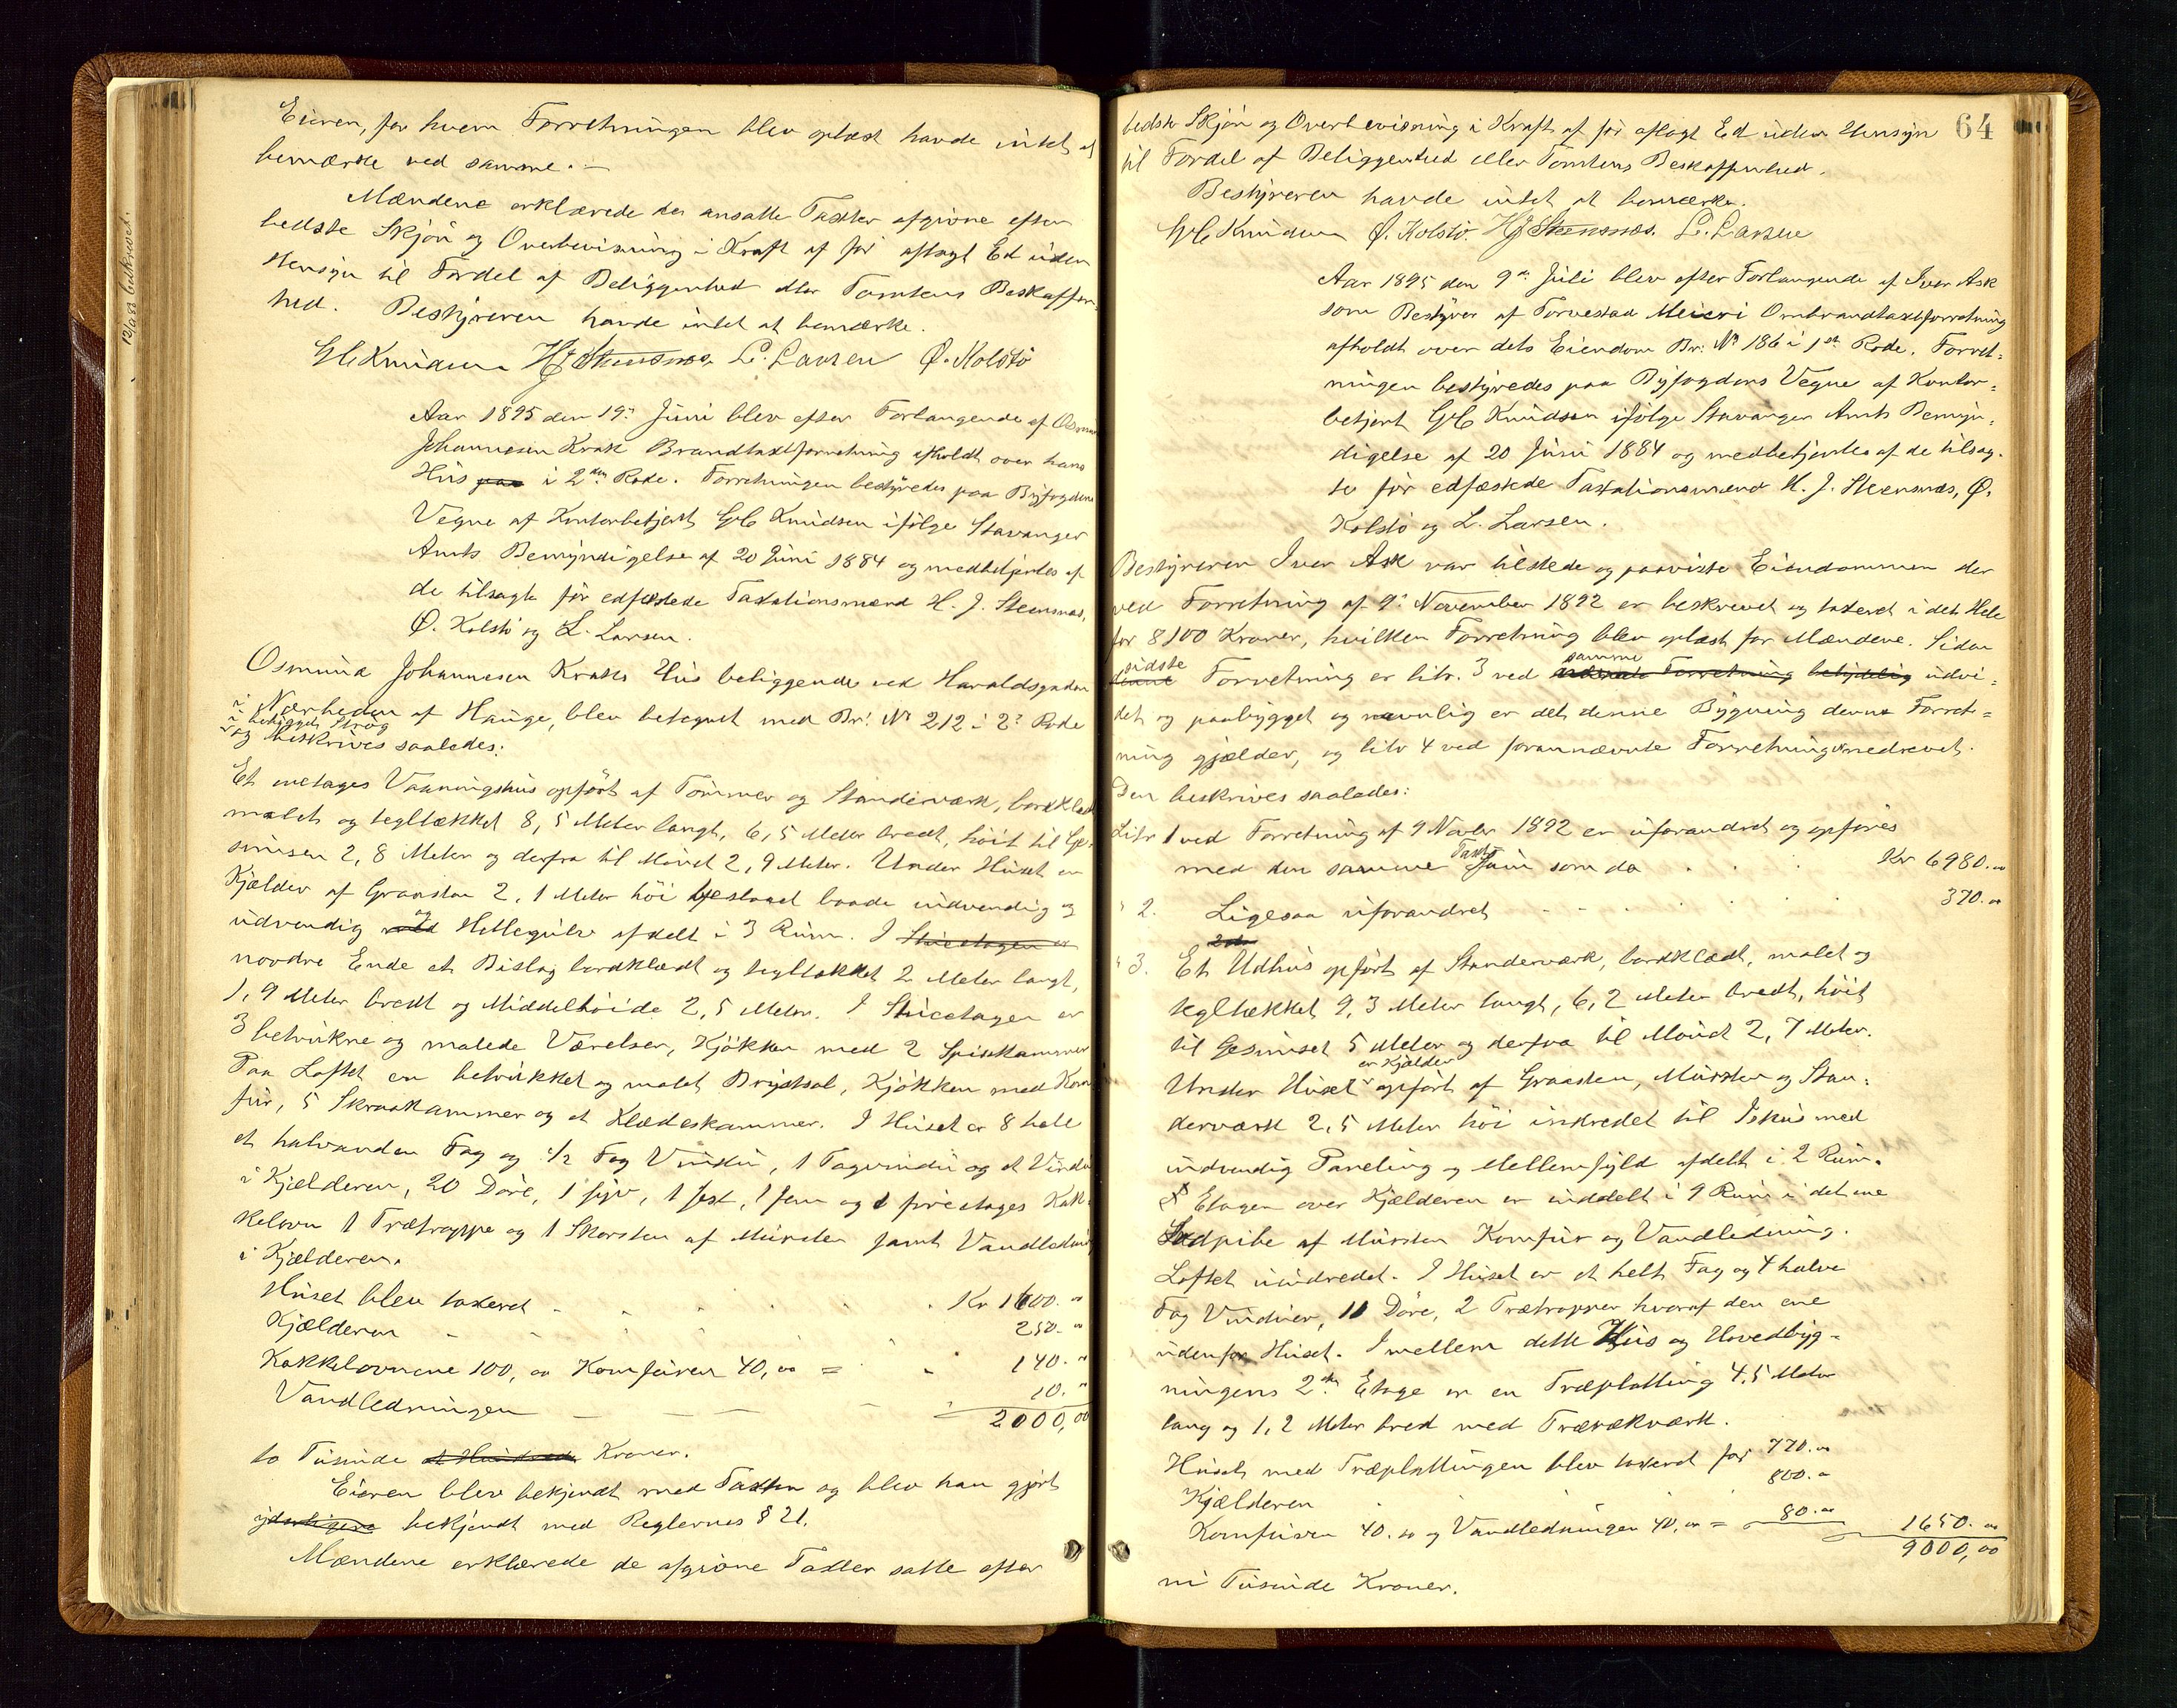 Eieren, for hvem Forretningen blev oplæst havde intet at
bemærke ved samme. –
Mændene erklærede de ansatte Taxter afgivne efter
bedste Skjøn og Overbevisning i Kraft af før aflagt Ed uden
Hensyn til Fordel af Beliggenhed eller Tomtens Beskaffen-
hed. Bestyreren havde intet at bemærke.
Knudsen HJ Steensnæs, L. Larsen Ø. Kolstø
Aar 1895 den 19de Juni blev efter Forlangende af Osmun
Johannesen Krak Brandtaxtforretning afholdt over hans
Hus paa i 2den Rode. Forretningen bestyredes paa Byfogdens
Vegne af Kontorbetjent Knudsen ifølge Stavanger
Amts Bemyndigelse af 20 Juni 1884 og medbetjentes af
de tilsagte før edfæstede Taxationsmænd H. J. Steensnæs,
Ø. Kolstø og L. Larsen.
Osmund Johannesen Kraks Hus beliggende ved Haraldsgaden
i Nærheden af Hauge, blev betegnet med Br. No 212 i 2. Rode
i bebygget Strøg
og beskrives saaledes:
Et enetages Vaaningshus opført af Tømmer og Standerværk, bordklædt
malet og tegltækket 8,5 Meter langt, 6,5 Meter bredt, høit til Ge-
simsen 2,8 Meter og derfra til Mønet 2,9 Meter. Under Huset er
Kjælder af Graasten 2,1 Meter høi beslaaet baade indvendig og
udvendig og Hellegulv afdelt i 3 Rum. I Stueetagen er
nordre Ende et Bislag bordklædt og tegltækket 2 Meter langt,
1,9 Meter bredt og Middelhøide 2,5 Meter. I Stueetagen er
3 betrukne og malede Værelser, Kjøkken med 2 Spiskammer
Paa Loftet en betrukket og malet Brystsal, Kjøkken med Kom-
fur, 5 Skraakammer og et Klædeskammer. I Huset er 8 hele
et halvanden Fag og 1/2 Fag Vindu, 1 Tagvindu og et Vindu
i Kjælderen, 20 Døre, 1 syv, 1 sex, 1 fem og 1 fireetages Kak-
kelovn 1 Trætrappe og 1 Skorsten af Mursten samt Vandledning
i Kjælderen.
Huset blev taxeret - - - - Kr 1600. "
Kjælderen - - - - 250. "
Kakkelovnene 100,00 Komfuren 40,00 = - 140. "
Vandledningen - - - - 10. "
2000,00
to Tusinde et Hundrede Kroner.
Eieren blev bekjendt med Taxten og blev han gjort
yderligere bekjendt med Reglernes § 21.
Mændene erklærede de afgivne Taxter satte efter
12/9 83 beskrevet.
64
bedste Skjøn og Overbevisning i Kraft af før aflagt Ed uden Hensyn
til Fordel af Beliggenhed eller Tomtens Beskaffenhed.
Bestyreren havde intet at bemærke.
Knudsen Ø. Kolstø. HJ Steensnæs. L. Larsen
Aar 1895 den 9de Juli blev efter Forlangende af Iver Ask
som Bestyrer af Torvestad Meieri Ombrandtaxtforretning
afholdt over dets Eiendom Br: No 186 i 1ste Rode. Forret-
ningen bestyredes paa Byfogdens Vegne af Kontor-
betjent Knudsen ifølge Stavanger Amts Bemyn-
digelse af 20 Juni 1884 og medbetjentes af de tilsag-
te før edfæstede Taxationsmænd H. J. Steensnæs, Ø.
Kolstø og L. Larsen.
Bestyreren Iver Ask var tilstede og paaviste Eiendommen der
ved Forretning af 9. November 1892 er beskrevet og taxeret i det Hele
for 8100 Kroner, hvilken Forretning blev oplæst for Mændene. Siden
sidste Forretning er litr. 3 ved samme Forretning betydelig udvi-
det og paabygget og navnlig er det denne Bygning denne Forret-
ning gjælder, og litr 4 ved forannævnte Forretning nedrevet.
Den beskrives saaledes:
Litr 1 ved Forretning af 9 Novbr 1892 er uforandret og opføres
med den samme Taxt Sum som da . . . Kr 6980.00
" 2. Ligesaa uforandret - - - - 370.00
" 3. Et Udhus opført af Standerværk, bordklædt, malet og
tegltækket 9,3 Meter langt, 6,2 Meter bredt, høit
til Gesimset 5 Meter og derfra til Mønet 2,7 Meter.
Under Huset er Kjælder opført af Graasten, Mursten og Stan-
derværk 2,5 Meter høi indredet til Ishus med
indvendig Paneling og Mellemfyld afdelt i 2 Rum.
Etagen over Kjælderen er inddelt i 9 Rum i det ene
Lodpibe af Mursten Komfur og Vandledning.
Loftet uindredet. I Huset er et helt Fag og 4 halve
Fag Vinduer, 11 Døre, 2 Trætrapper hvoraf den ene
udenfor Huset. Imellem dette Hus og Hovedbyg-
ningens 2den Etage er en Træplatting 4,5 Meter
lang og 1,2 Meter bred med Trærækværk.
Huset med Træplattingen blev taxeret for 770.00
Kjælderen 800. "
Komfuren 40.00 og Vandledningen 40,00 = 80.00 1650.00
9000,00
ni Tusinde Kroner.